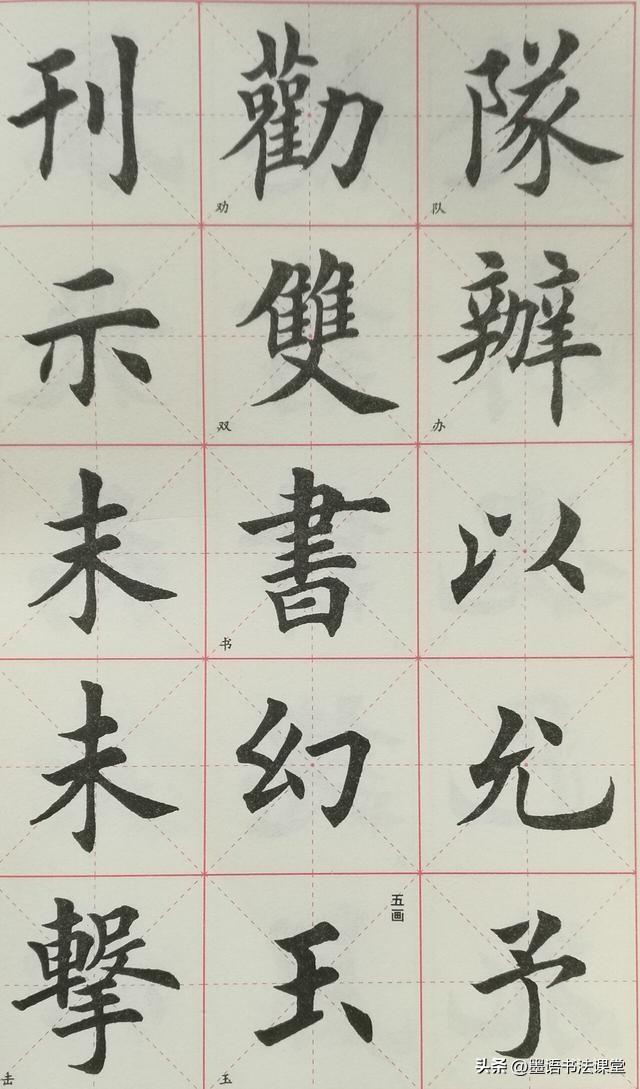 隊 队 辦 办 以 允 予
勸 劝 雙 双 書 书 幻 五画 玉 玉
刊 示 末 未 擊 击
头条 @墨语书法课堂